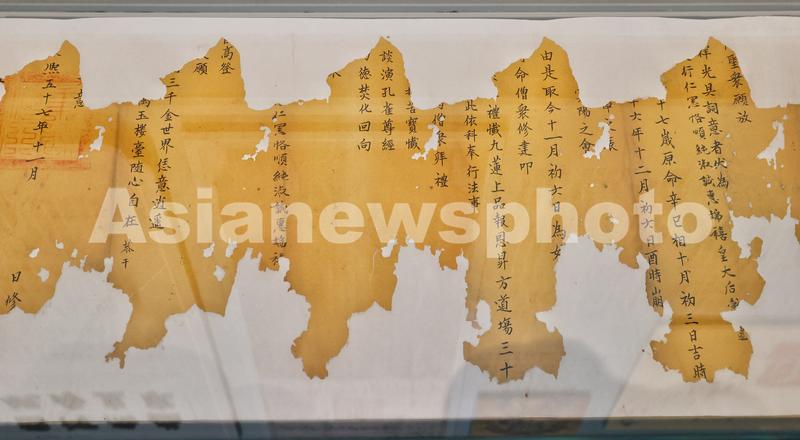 聖衆願放
祥光具詞意者伏為
行仁罣恪順純淑誠惠端禧皇太后
十七歲原命辛巳相十月初三日吉時
十六年十二月初六日酉時崩
陽之會
由是取今十一月初六日為女
命僧衆修建叩
禮懺九蓮上品報恩昇方道塲三十
此依科奉行法事
僧衆拜禮
寶懺
談演孔雀尊經
德焚化回向
仁罣恪順純淑誠惠端禧
高登
願
三千金世界恁意逍遥
玉楼臺随心自在恭干
意
熙五十七年十一月
日修
Asianewsphoto